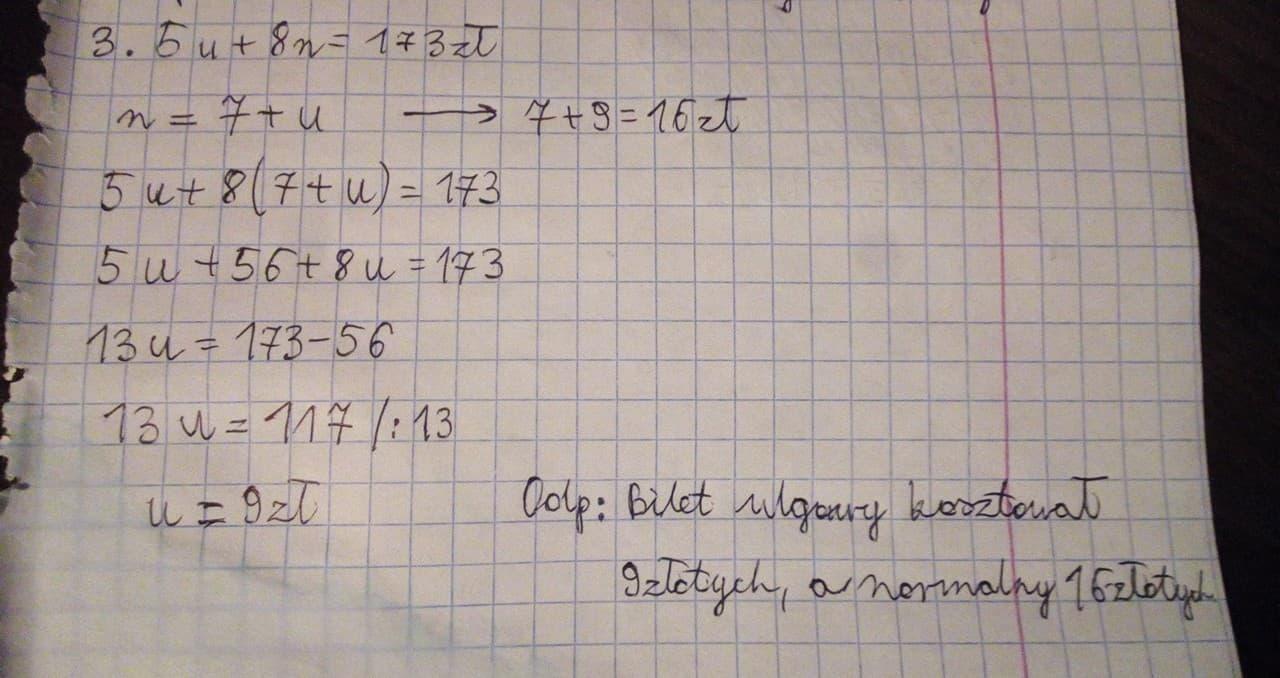 3. 5u + 8n = 173zł
n = 7 + u ⟶ 7 + 9 = 16zł
5u + 8(7 + u) = 173
5u + 56 + 8u = 173
13u = 173 - 56
13u = 117 /: 13
u = 9zł
Odp: Bilet ulgowy kosztował
9złotych, a normalny 16złotych